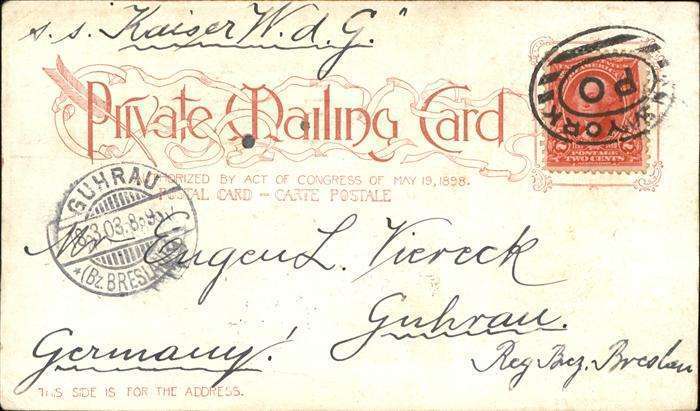 s.s. "Kaiser W. d. G."
Private Mailing Card
AUTHORIZED BY ACT OF CONGRESS OF MAY 19, 1898.
POSTAL CARD – CARTE POSTALE
POSTAGE
TWO CENTS
YORK
P.O
GUHRAU
3.03.8-9
*(BZ. BRESLAU)
Mr Eugen L. Viereck
Guhrau.
Germany!
Reg Bez. Breslau
THIS SIDE IS FOR THE ADDRESS.